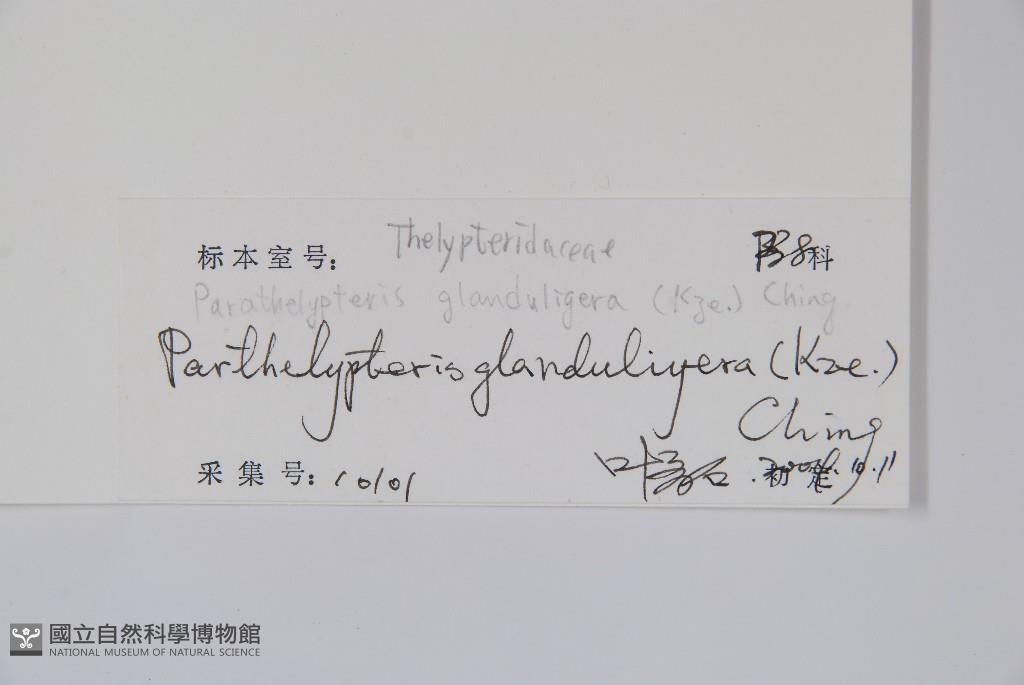 标本室号: Thelypteridaceae 科
Parathelypteris glanduligera (Kze.) Ching
Parthelypteris glanduligera (Kze.)
Ching
采集号: 10101 初定 10.11
國立自然科學博物館
NATIONAL MUSEUM OF NATURAL SCIENCE